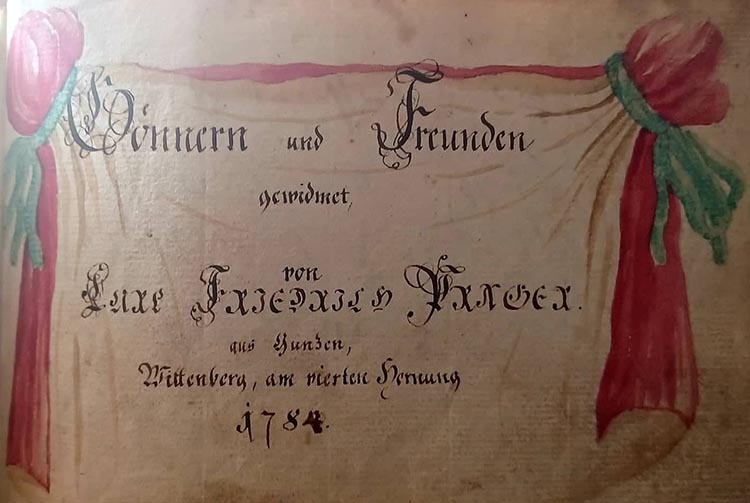 Gönnern und Freunden
gewidmet,
von
CARL FRIEDRICH
aus Gunzen,
Wittenberg, am vierten Hornung
1784.